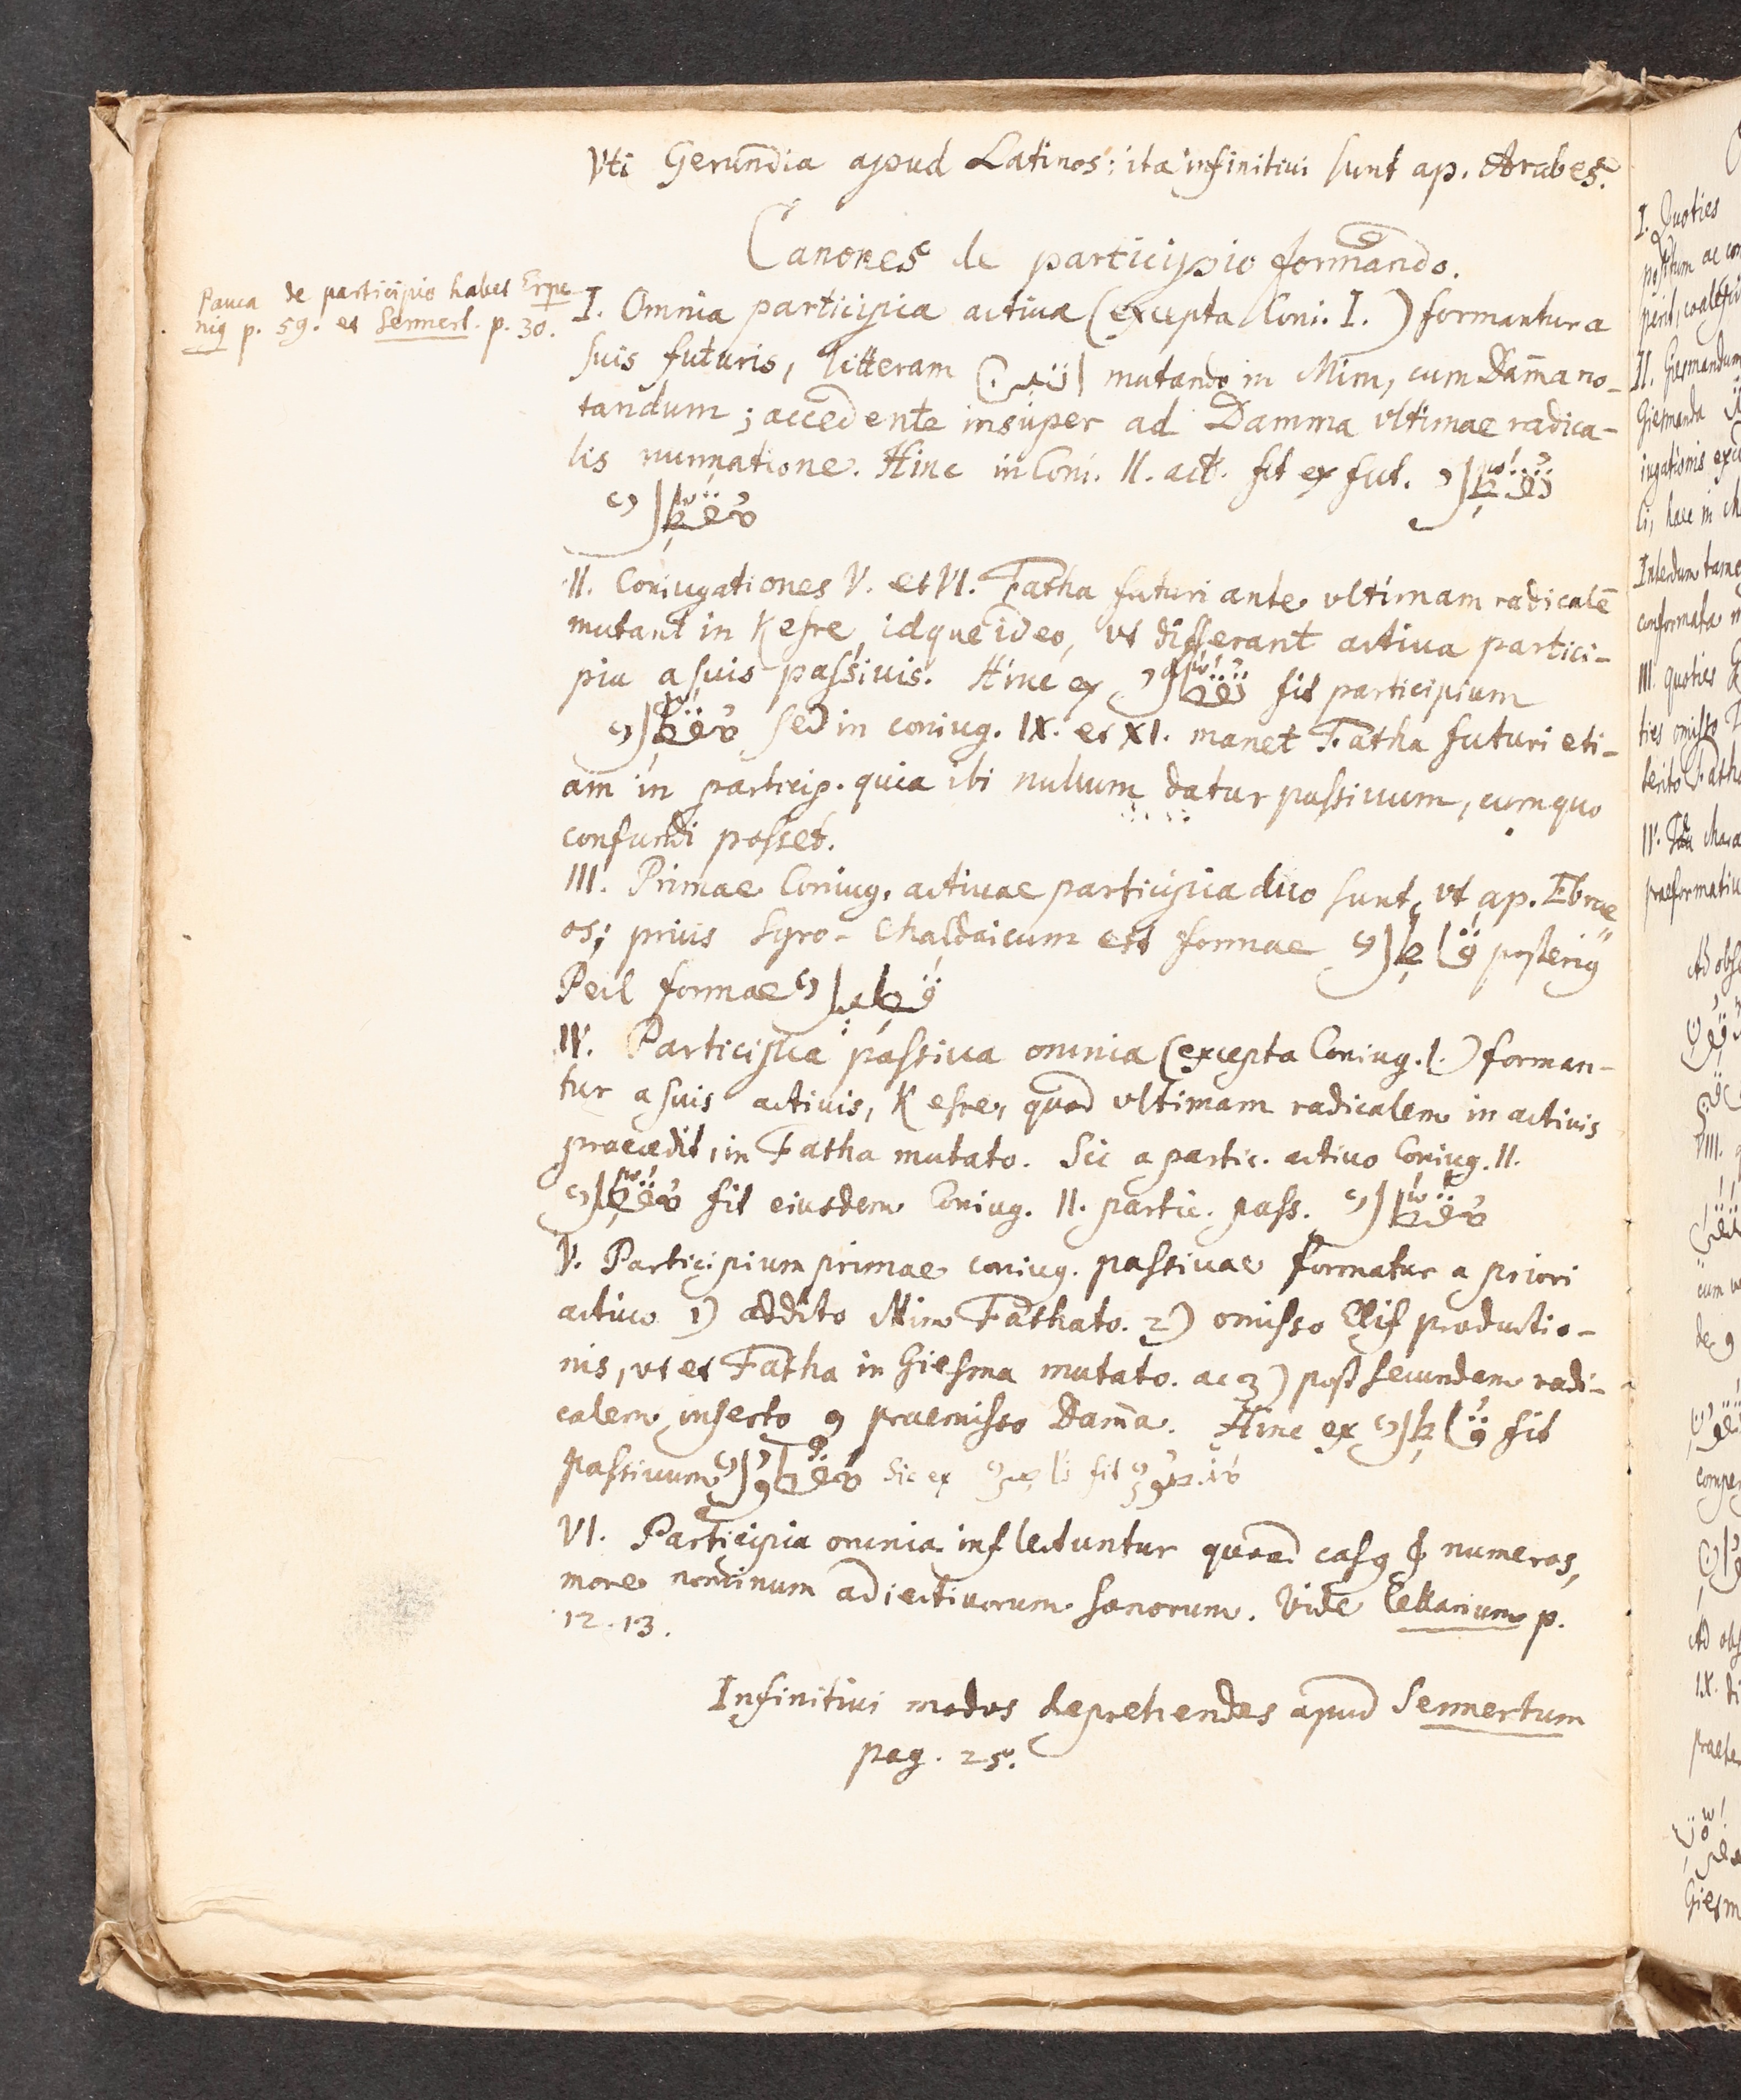 Vti Gerundia apud Latinos: ita infinitiui sunt ap. Arabes.
Canones de participio formando.
Pauca de participio habes Erpe
nig p. 59. et Sennert. p. 30.
I. Omnia participia actiua (excepta Coni. I.) formantur a
suis futuris, litteram اتين mutando in Mim, cum Dam̄a no-
tandum; accedente insuper ad Damma vltimae radica-
lis nunnatione. Hinc in Coni. II. act. fit ex fut. يُقَطِّلُ
مُقَطِّلٌ
II. Coniugationes V. et VI. Fatha futuri ante vltimam radicalē
mutant in Kesre, idque ideo, vt differant actiua partici-
pia a suis passiuis. Hinc ex يَتَقَطَّلُ fit participium
مُتَقَطِّلٌ sed in coniug. IX. et XI. manet Fatha futuri eti-
am in particip. quia ibi nullum datur passiuum, cum quo
confundi posset.
III. Primae Coniug. actiuae participia duo sunt, vt ap. Ebrae
os; prius Syro-Chaldaicum est formae قَاطِلٌ posterig
Peil formae قَطِيلٌ
IV. Participia passiua omnia (excepta Coniug. I.) forman-
tur a suis actiuis, Kesre, quod vltimam radicalem in actiuis
praecedit, in Fatha mutato. Sic a partic. actiuo Coniug. II.
مُقَطِّلٌ fit eiusdem Coniug. II. partic. pass. مُقَطَّلٌ
V. Participium primae coniug. passiuae formatur a priori
actiuo 1) addito Mim Fathato. 2) omisso Elif productio-
nis, vt et Fatha in Giesma mutato. ac 3) post secundam radi-
calem inserto و praemisso Dam̄a. Hinc ex قَاطِلٌ fit
passiuum مَقْطُولٌ Sic ex نَاصِرٌ fit مَنْصُورٌ
VI. Participia omnia inflectuntur quoad casg & numeros,
more nominum adiectiuorum sanorum. Vide Cellarium p.
12. 13.
Infinitiui modos deprehendes apud Sennertum
pag. 25.